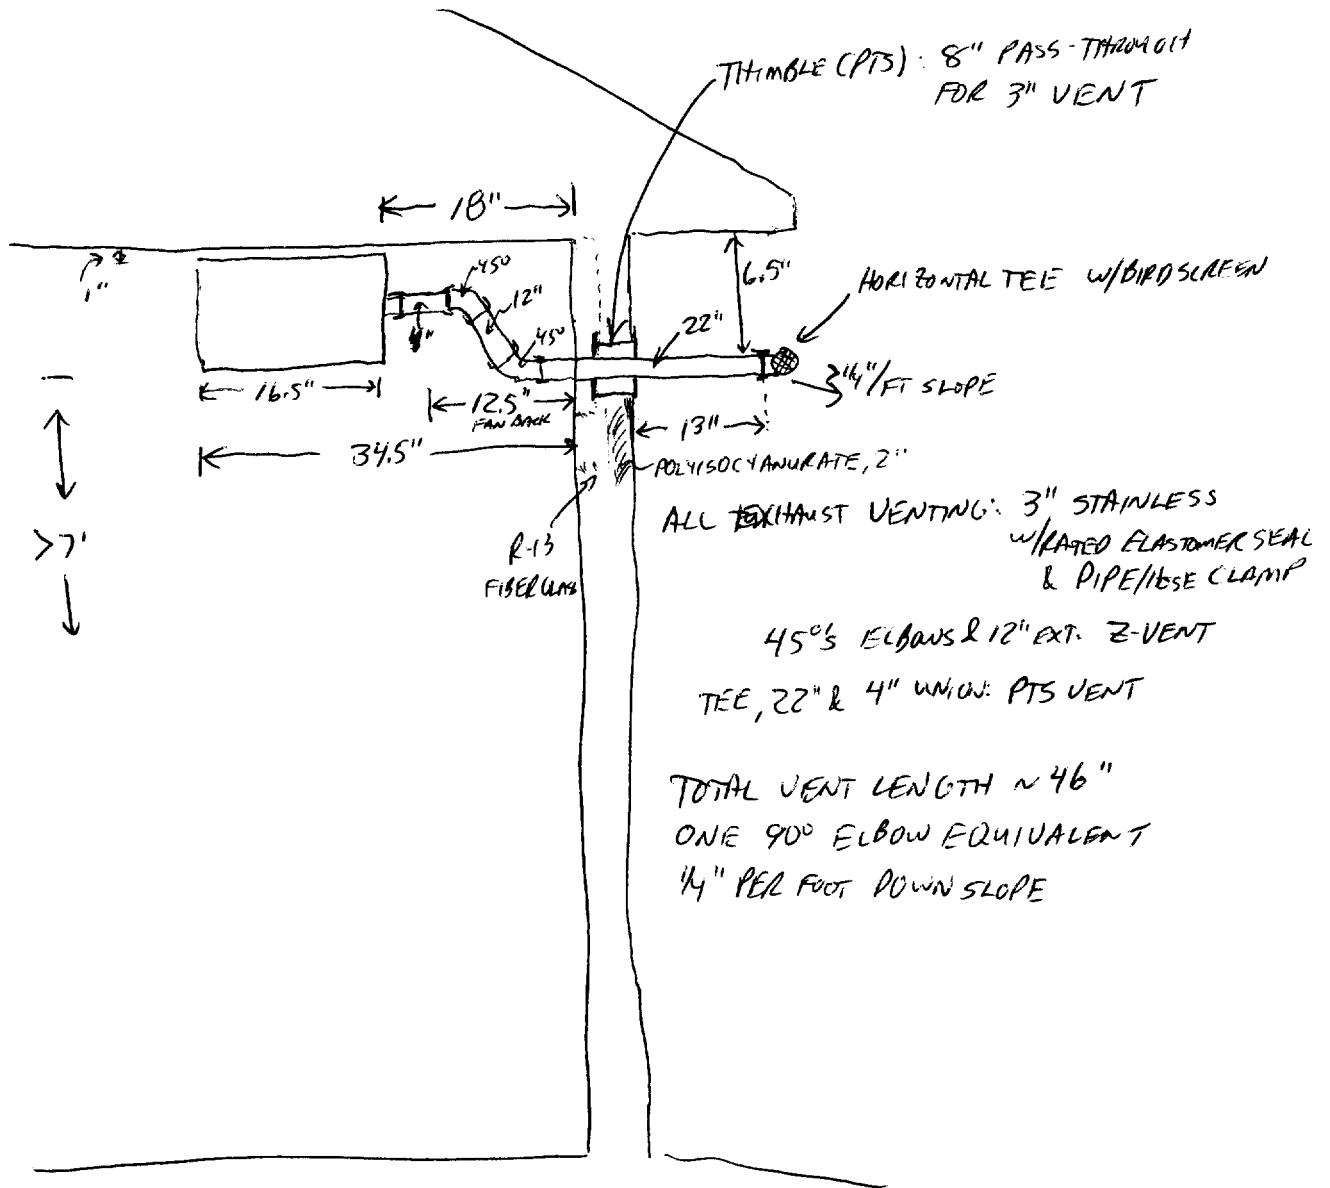 THIMBLE (PTS): 8" PASS-THROUGH
FOR 3" VENT
18"
1"
45°
12"
4"
45°
22"
6.5"
HORIZONTAL TEE W/BIRDSCREEN
1/4"/FT SLOPE
16.5"
12.5"
FAN BACK
13"
34.5"
POLYISOCYANURATE, 2"
>7'
R-13
FIBERGLASS
ALL EXHAUST VENTING: 3" STAINLESS
W/RATED ELASTOMER SEAL
& PIPE/HOSE CLAMP
45°'S ELBOWS & 12" EXT. Z-VENT
TEE, 22" & 4" UNION: PTS VENT
TOTAL VENT LENGTH ~ 46"
ONE 90° ELBOW EQUIVALENT
1/4" PER FOOT DOWN SLOPE